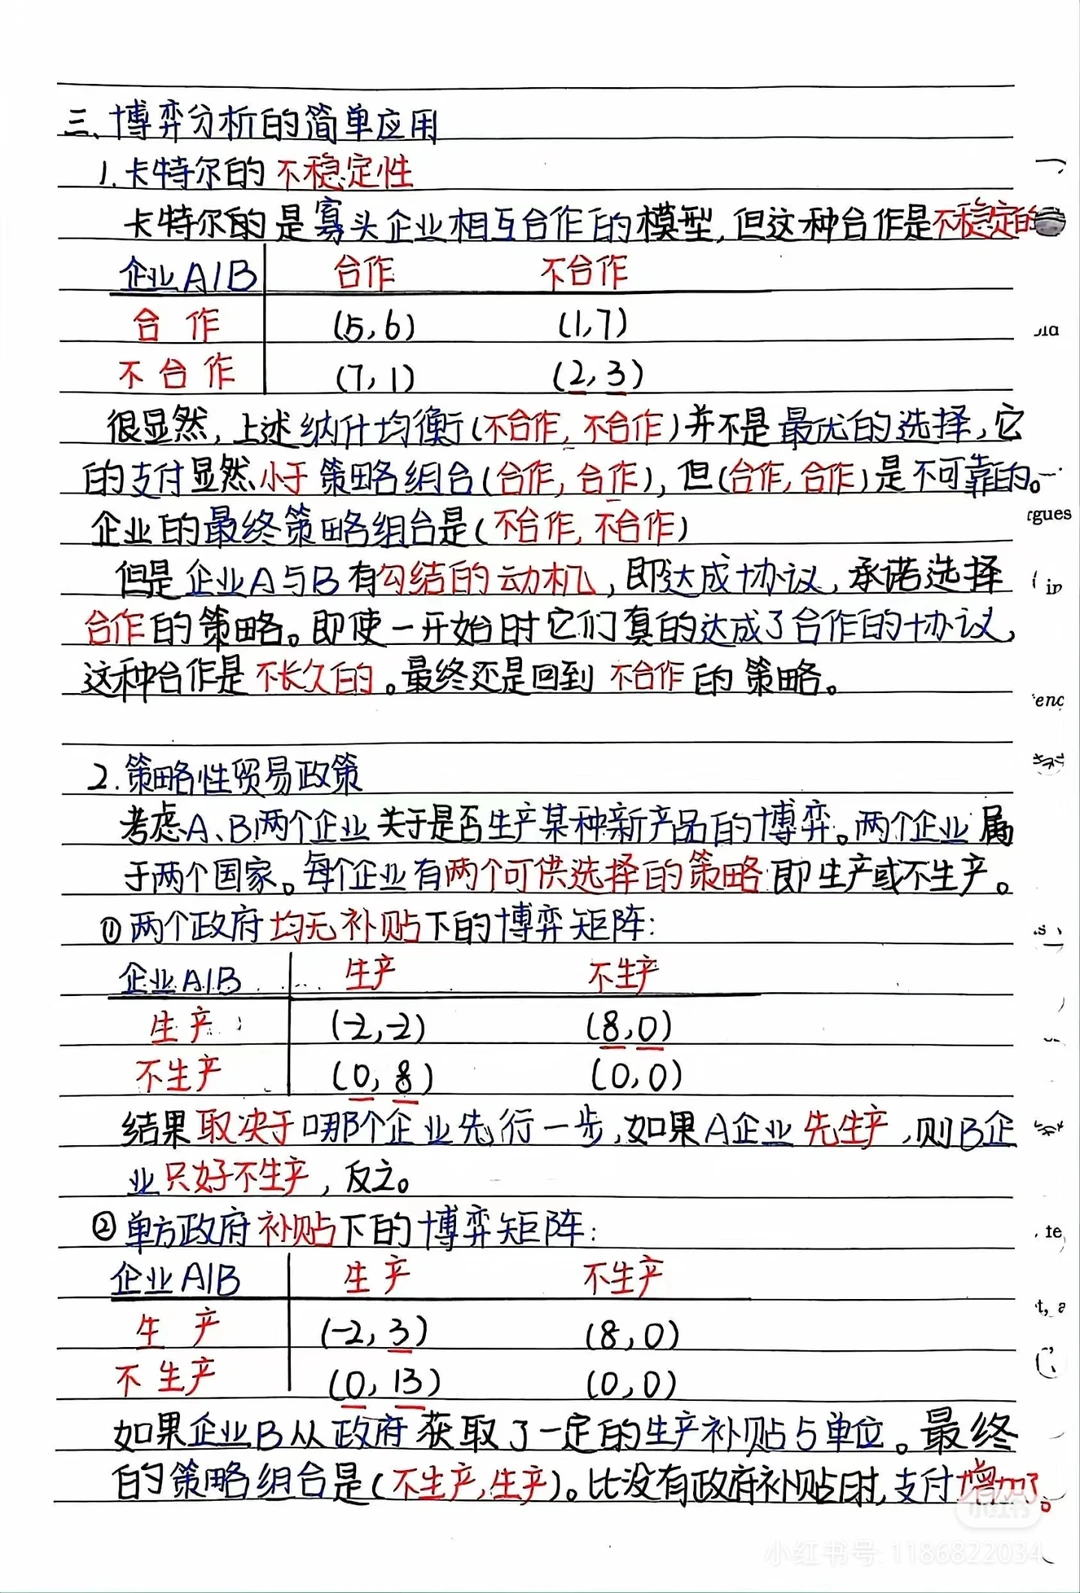 三、博弈分析的简单应用
1.卡特尔的不稳定性
卡特尔的是寡头企业相互合作的模型,但这种合作是不稳定的
企业A/B 合作 不合作
合作 (5,6) (1,7)
不合作 (7,1) (2,3)
很显然,上述纳什均衡(不合作,不合作)并不是最优的选择,它
的支付显然小于策略组合(合作,合作),但(合作,合作)是不可靠的。
rgues
企业的最终策略组合是(不合作,不合作)
但是企业A与B有勾结的动机,即达成协议,承诺选择
合作的策略。即使一开始时它们真的达成了合作的协议,
这种合作是不长久的。最终还是回到不合作的策略。
2.策略性贸易政策
考虑A、B两个企业关于是否生产某种新产品的博弈。两个企业属
于两个国家。每个企业有两个可供选择的策略即生产或不生产。
①两个政府均无补贴下的博弈矩阵:
企业A/B 生产 不生产
生产 (-2,-2) (8,0)
不生产 (0,8) (0,0)
结果取决于哪个企业先行一步,如果A企业先生产,则B企
业只好不生产,反之。
②单方政府补贴下的博弈矩阵:
企业A/B 生产 不生产
生产 (-2,3) (8,0)
不生产 (0,13) (0,0)
如果企业B从政府获取了一定的生产补贴5单位。最终
的策略组合是(不生产,生产)。比没有政府补贴时,支付增加了。
小红书
小红书号:1186822034